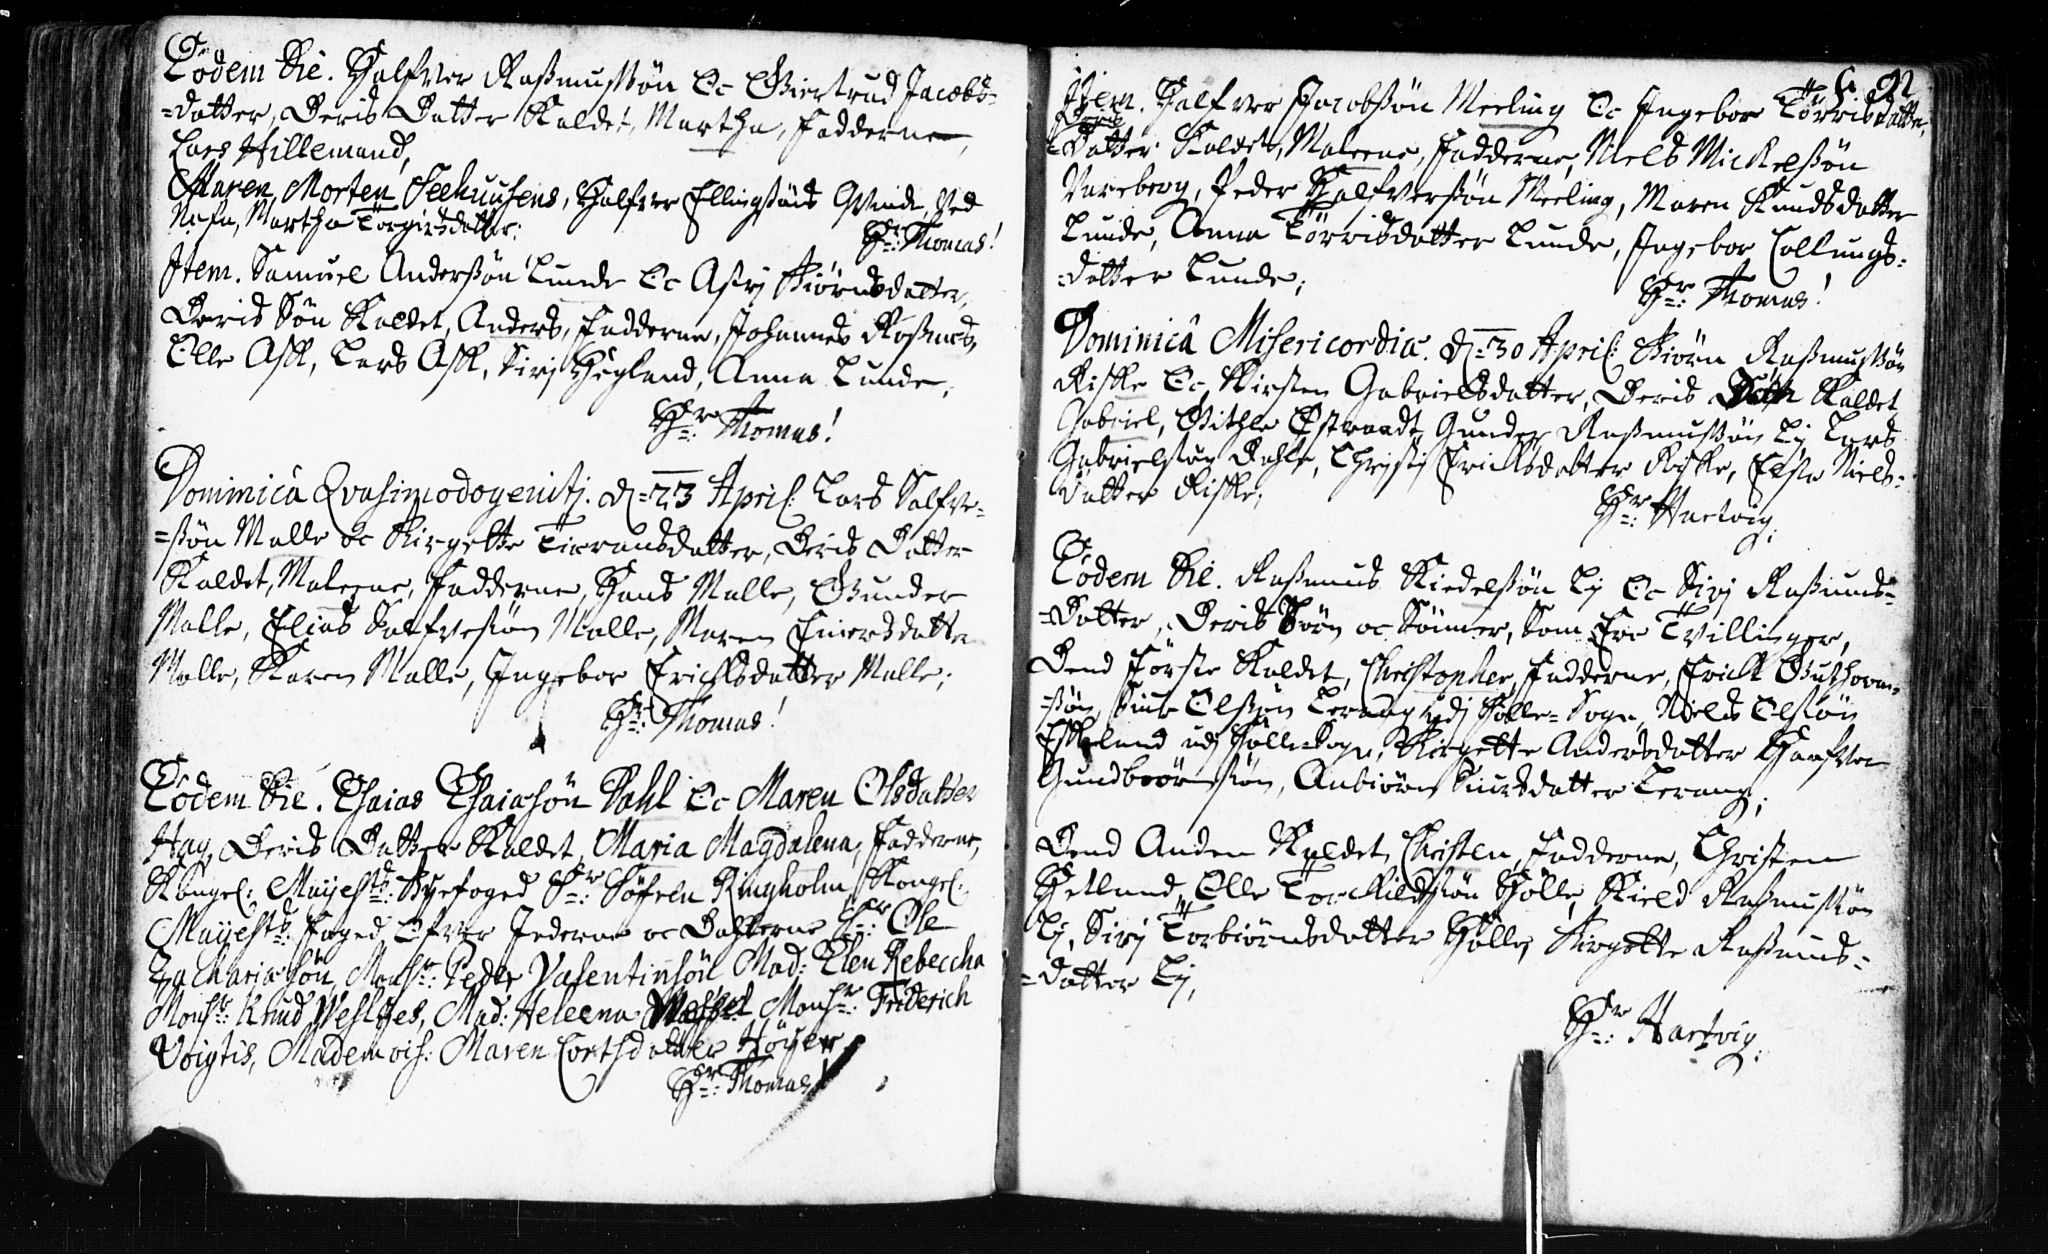 Eodem Die. Halfver Rasmussøn Oc Giertrud Jacobs-
=datter, Deris Datter Kaldet, Martha, Fadderne,
Lars Hillemand,
Maren, Morten Seehuusens, Halfver Ellingsøns Qvinde Ved
Nafn, Martha Torgirsdatter;
Hr: Thomas!
Item. Samuel Andersøn Lunde Oc Astrj Biørnsdatter,
Deris Søn Kaldet, Anders, Fadderne, Johannes Rasmus,
Olle Ask, Lars Ask, Sirj Høgland, Anna Lunde,
Hr: Thomas!
Dominicâ Qvasimodogenitj. d=23 April: Lars Salfve-
=søn Malle oc Birgette Tioransdatter, Deris Datter
Kaldet, Maleene, Fadderne, Hans Malle, Gunder
Malle, Elias Salfvesøn Malle, Maren Einersdatter
Malle, Karen Malle, Ingebor Erichsdatter Malle;
Hr: Thomas!
Eodem Die. Esaias Esaiasøn Dahl Oc Maren Olsdatter
Hag, Deris Datter Kaldet, Maria Magdalena, Fadderne,
Kongel: Mayestd: Byefoged Sr: Søfren Ringholm, Kongel:
Mayestd: Foged Ofver Jederen oc Dahlerne Sr: Ole
Zachariasøn, Monsr: Peder Valentinsøn Mad: Elen Rebeccha
Monsr: Knud Wesltjes, Mad: Heleena Monsr: Friderich
Voigtis, Mademois: Maren Cortsdatter Høyer
Hr: Thomas!
Item. Halfver Jacobsøn Meeling Oc Ingebor Tørrisdatter,
Deris
=Datter Kaldet, Maleene, Fadderne, Niels Mickelsøn
Vareberg, Peder Halfversøn Meeling, Maren Knudsdatter
Lunde, Anna Tørrisdatter Lunde, Ingebor Collungs=
=datter Lunde;
Hr: Thomas!
Dominicâ Misericordia. d=30 April: Biørn Rasmussøn
Riske Oc Kirsten Gabrielsdatter, Deris Søn Kaldet
Gabriel, Githle Østraadt, Gunder Rasmussøn Lj Lars
Gabrielsøn Dahle, Chrjstj Ericksdatter Riske, Elsa Niels-
datter Riske;
Hr: Hartvig.
Eodem Die. Rasmus Kiedelsøn Lj Oc Sirj Rasmus-
=Datter, Deris Søn oc Sønner, Som Ere Tvillinger,
Dend Første Kaldet, Christopher, Fadderne, Erick Guthorm-
=søn, Siur Olssøn Lerang udj Hølle=Sogn, Niels Olsøn
Eskeland udj Hølle Sogn, Birgette Andersdatter Haafver
Gundbiørnsøn, Anbiørn Siursdatter Lerang;
Dend Anden Kaldet, Christen, Fadderne, Christen
Hetland, Olle Torchildsøn Hølle, Kield Rasmussøn
Lj, Sirj Torbiørnsdatter Hølle, Birgette Rasmus-
=datter Lj,
Hr: Hartvig.